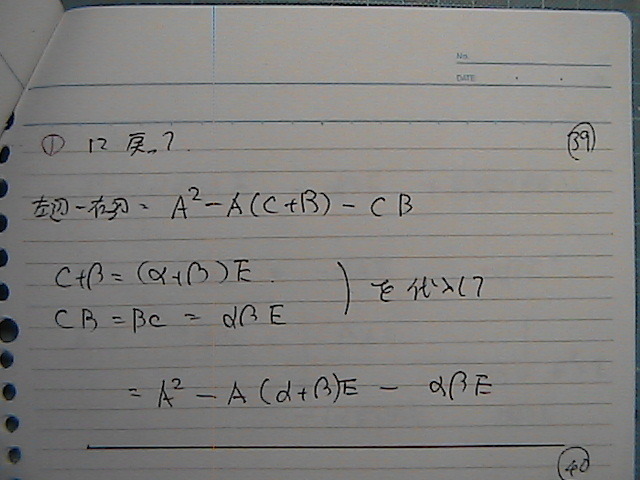 No.
DATE
① に戻って. ㊴
左辺-右辺= A²-A(C+B)-CB
C+B=(α+β)E.
CB=BC=αβE ) を代入して
=A²-A(α+β)E-αβE
㊵